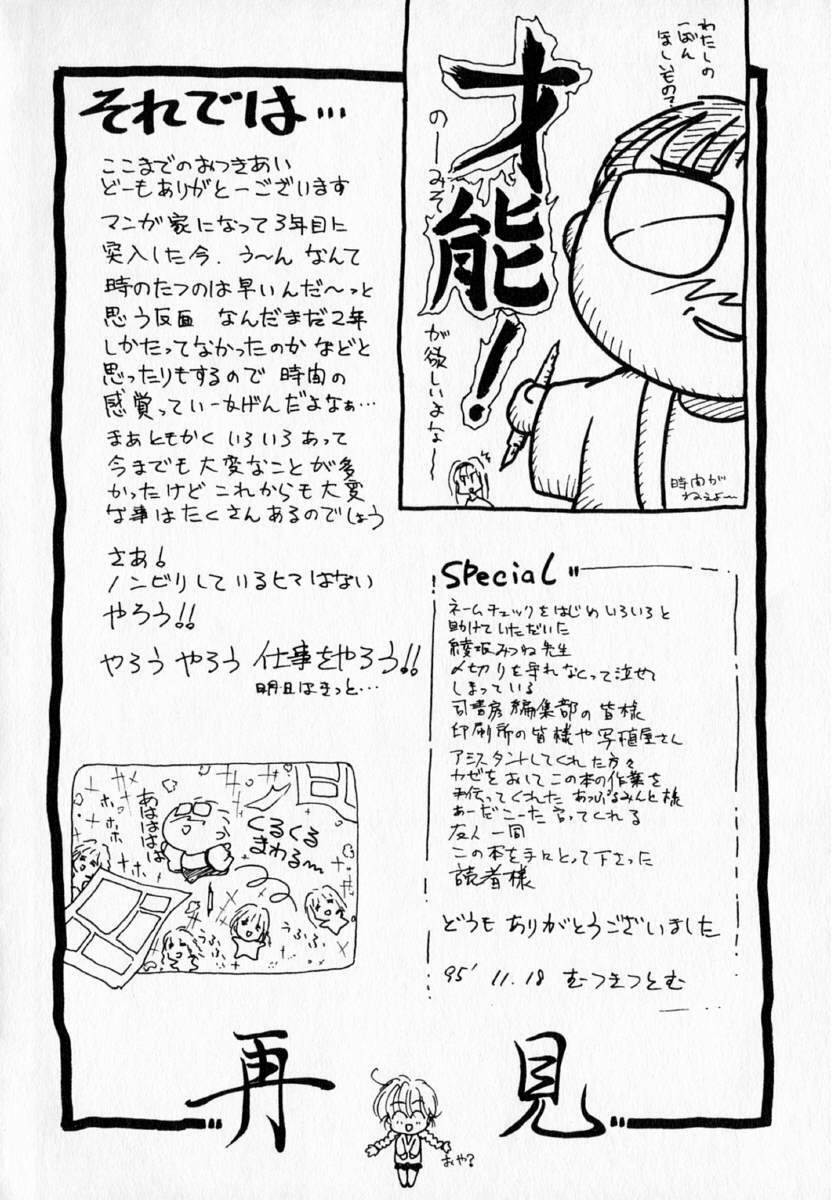 わたしの
一ばん
ほしいもの?
才能!
のーみそ
が欲しいよな〜
時間が
ねぇよ〜
それでは…
ここまでのおつきあい
どーもありがとーございます
マンガ家になって3年目に
突入した今、う〜ん なんて
時のたつのは早いんだ〜っと
思う反面 なんだまだ2年
しかたってなかったのか などと
思ったりもするので 時間の
感覚っていー加げんだよなぁ…
まぁともかく いろいろあって
今までも大変なことが多
かったけど これからも大変
な事はたくさんあるのでしょう
さあ!
ノンビリしているヒマはない
やろう!!
やろう やろう 仕事をやろう!!
明日はきっと…
Special
ネームチェックをはじめ いろいろと
助けていただいた
綾坂みつね先生
〆切りを守れなくって泣せて
しまっている
司書房編集部の皆様
印刷所の皆様や写植屋さん
アシスタントしてくれた方々
カゼをおして この本の作業を
手伝ってくれた あっぷるみんと様
あーだこーだ言ってくれる
友人一同
この本を手にとって下さった
読者様
どうも ありがとうございました
95' 11.18 むつきつとむ
あはははは
ホホホ
くるくる
まわる〜
うふふ
うふふ
再見
おや?